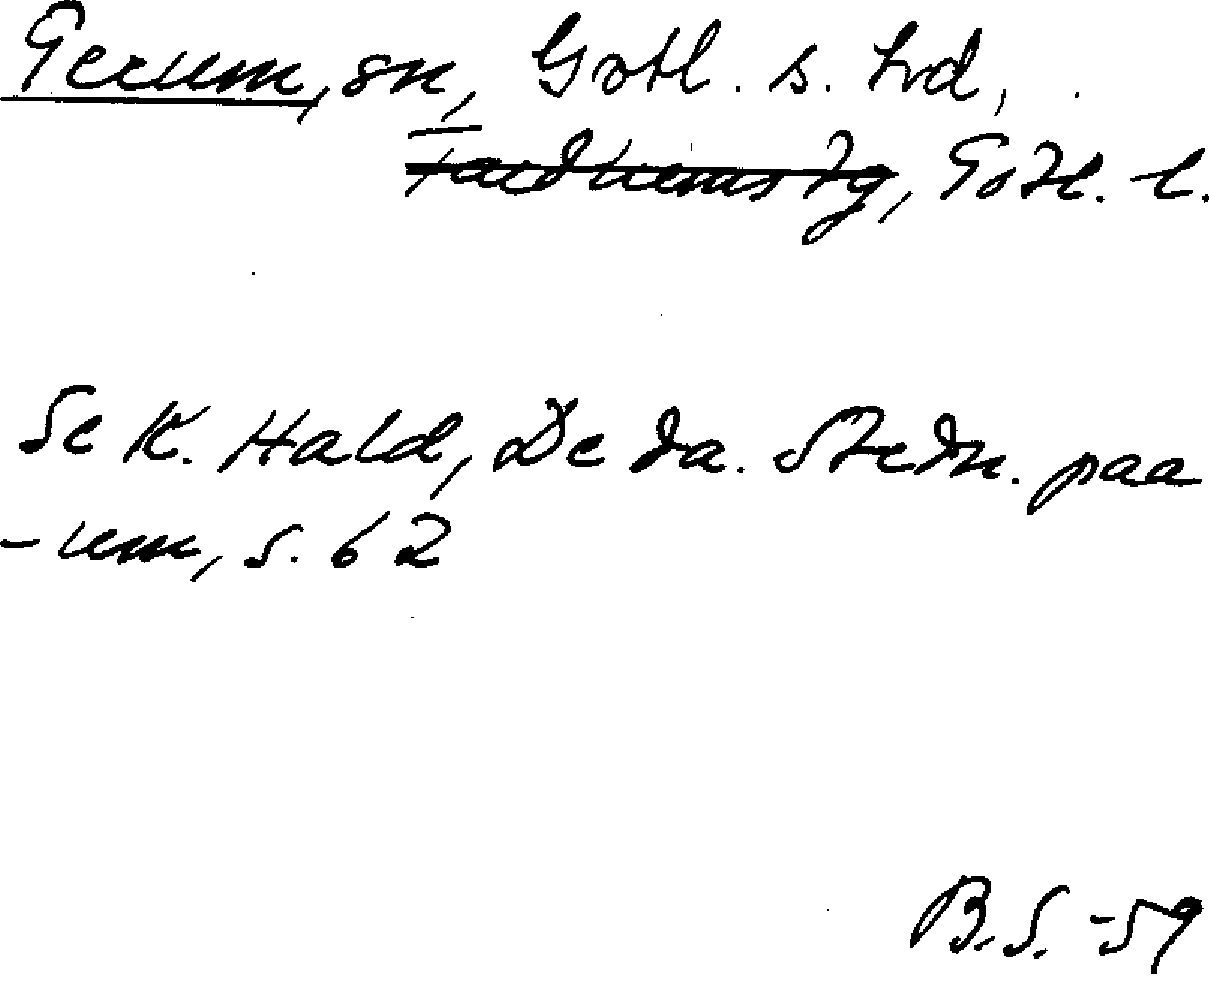 Gerum, sn, Gotl. s. hrd,
Fardhems tg, Gotl. l.
Se K. Hald, De da. Stedn. paa
-um, s. 62
B.S. -59